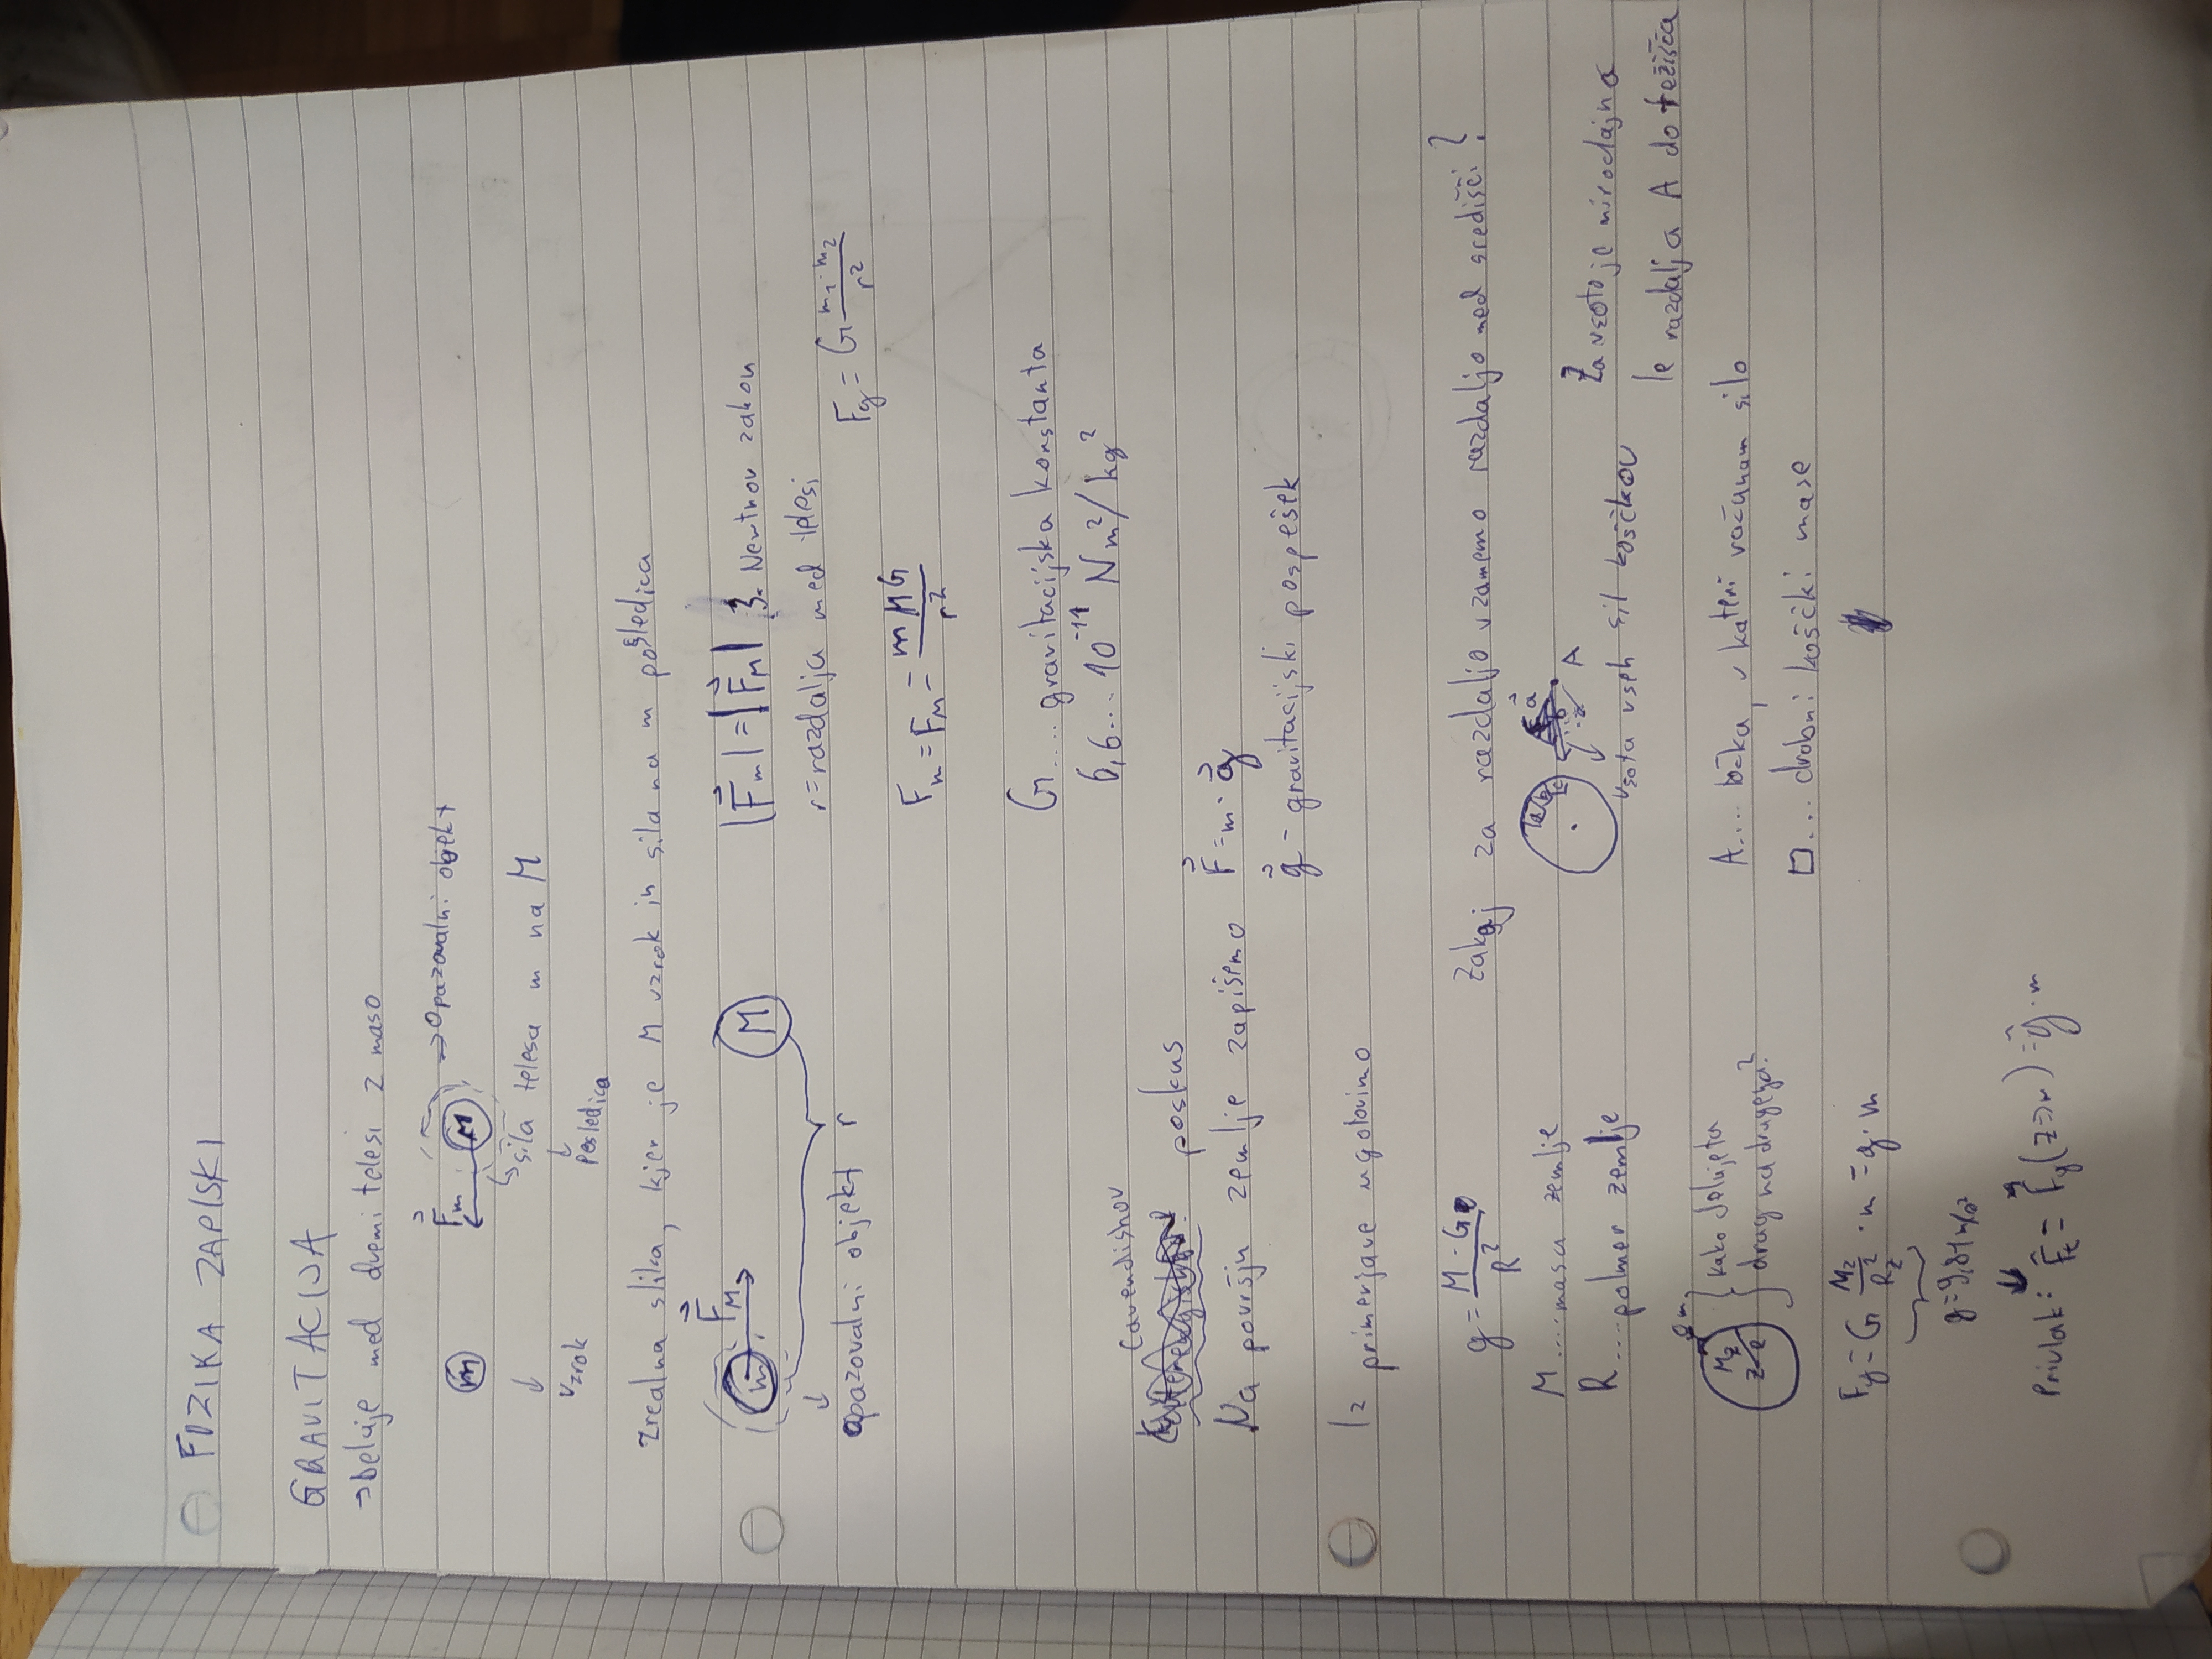 FIZIKA ZAPISKI
GRAVITACIJA
→ Deluje med dvemi telesi z maso
m F⃗m M → Opazovalni objekt
↳ sila telesa m na M
↓ ↓
vzrok Posledica
zrcalna slika, kjer je M vzrok in sila na m posledica
m F⃗M M
↓
opazovalni objekt r
|F⃗m| = |F⃗M| 3. Newtnov zakon
r = razdalja med telesi
Fg = G m1·m2 / r²
Fm = FM = mMG / r²
G .... gravitacijska konstanta
6,6... 10⁻¹¹ Nm²/kg²
Cavendishov
poskus
Na površju zemlje zapišemo F⃗ = m · g⃗
g⃗ - gravitacijski pospešek
Iz primerjave ugotovimo
g = M · G / R²
M .... masa zemlje
R .... polmer zemlje
Zakaj za razdaljo vzamemo razdaljo med središči?
a b c a⃗ A
vsota vseh sil koščkov
Za vsoto je mirodajna
le razdalja A do težišča
A .... točka, v kateri računam silo
□ ... drobni koščki mase
m
Mz
kako delujeta
drug na drugega?
Fg = G Mz / Rz² · m = g · m
g = 9,81 m/s²
↓
Privlak: F⃗t = F⃗g (z ⇒ m) = g⃗ · m